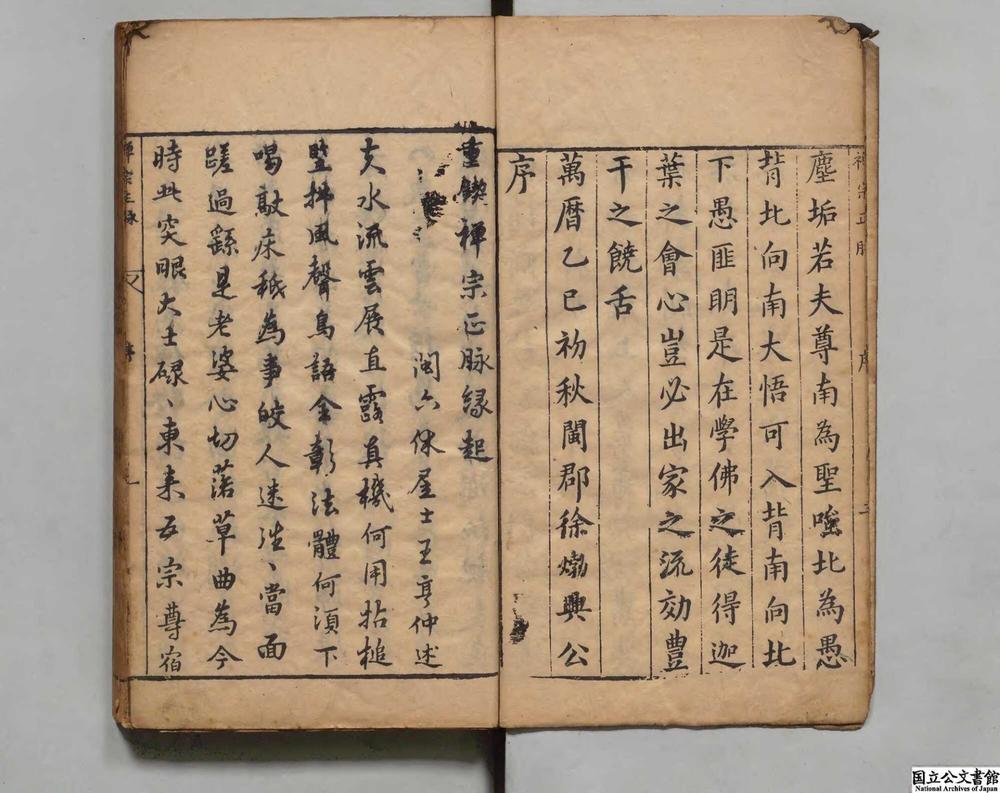 塵垢若夫尊南為聖嗤北為愚
背北向南大悟可入背南向北
下愚匪朙是在學佛之徒得迦
葉之會心豈必出家之流効豐
干之饒舌
萬曆乙巳初秋閩郡徐𤊹興公
序
禪宗正脉
序
三
重鍥禪宗正脉緣起
閩六休居士王亨仲述
夫水流雲展直露真機何用拈槌
竪拂風聲鳥語全彰法體何須下
喝敲床秖為事皎人迷泩〻當面
蹉過繇是老婆心切落草曲為今
時此突眼大士碌〻東来五宗尊宿
禪宗正脉
序
国立公文書館
National Archives of Japan